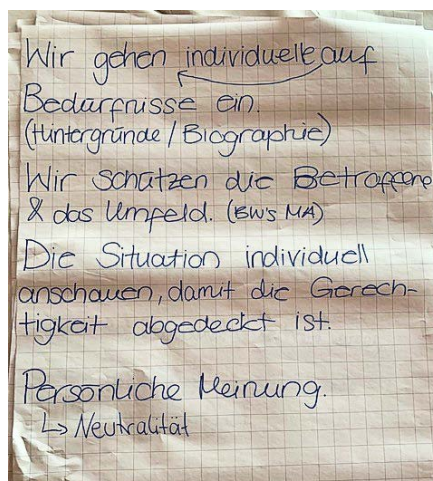 Wir gehen individuelle auf
Bedürfnisse ein.
(Hintergründe / Biographie)
Wir schützen die Betroffene
& das Umfeld. (BW's MA)
Die Situation individuell
anschauen, damit die Gerech-
tigkeit abgedeckt ist.
Persönliche Meinung.
↳ Neutralität